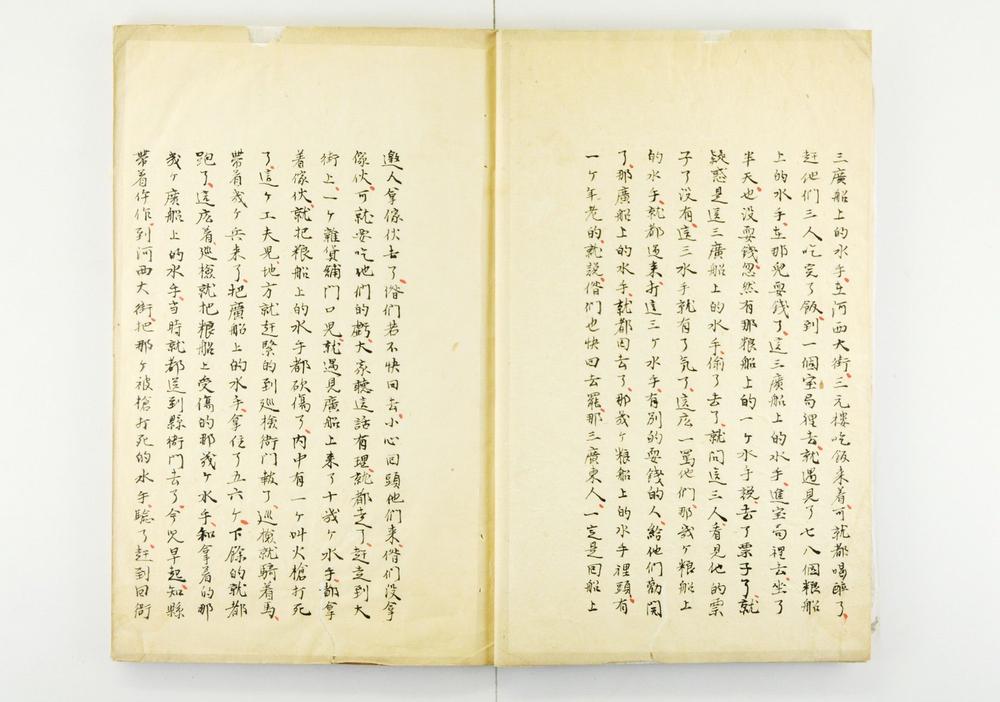 三廣船上的水手、在河西大街、三元樓吃飯来着、可就都喝醉了、
赶他們三人吃完了飯、到一個宝局裡去、就遇見了七八個粮船
上的水手、在那兒耍錢了、這三廣船上的水手、進宝局裡去、坐了
半天、也没耍錢、忽然有那粮船上的一ケ水手説、丢了票子了、就
疑惑是這三廣船上的水手、偷了去了、就問這三人、看見他的票
子了没有、這三水手就有了氣了、這庅一罵他們、那幾ケ粮船上
的水手、就都過来、打這三ケ水手、有別的耍錢的人、給他們勸開
了、那廣船上的水手、就都回去了、那幾ケ粮船上的水手裡頭、有
一ケ年老的、就説、偺們也快回去罷、那三廣東人、一定是回船上
邀人拿傢伙去了、偺們若不快回去、小心回頭他們来、偺們没拿
傢伙、可就要吃他們的虧、大家聽這話有理、就都走了、赶走到大
街上、一ケ雜貨舖門口兒、就遇見廣船上来了十幾ケ水手、都拿
着傢伙、就把粮船上的水手都砍傷了、内中有一ケ叫火槍打死
了、這ケ工夫兒、地方就赶緊的到巡檢衙門報了、巡檢就騎着馬、
帶着幾ケ兵来了、把廣船上的水手、拿住了五六ケ、下餘的就都
跑了、這庅着、巡檢就把粮船上受傷的那幾ケ水手、和拿着的那
幾ケ廣船上的水手、当時就都送到縣衙門去了、今兒早起、知縣
帶着仵作、到河西大街、把那ケ被槍打死的水手、驗了、赶到回衙